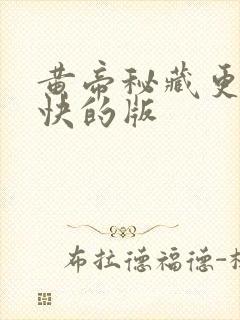 黄帝秘藏更
快的版
布拉德福德-